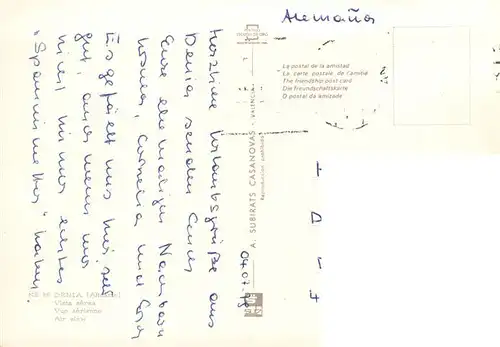 Alemaña
La postal de la amistad
La carte postale de l'amitié
The friendship post card
Die Freundschaftskarte
O postal da amizade
A. SUBIRATS CASANOVAS - VALENCIA
04.07.
Herzliche Urlaubsgrüße aus
Denia senden Euch
Eure ehemaligen Nachbarn
Cornelia und
Es gefällt uns hier sehr
gut, auch wenn wir
nicht immer echtes
"Spanienwetter" haben.
DENIA (Alicante)
Vista aérea
Vue aérienne
Air view